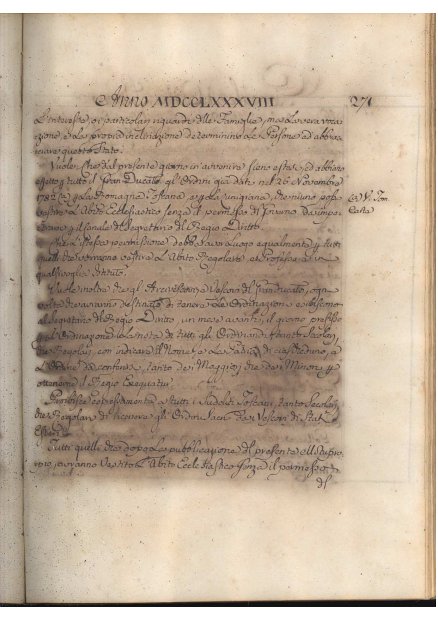 Anno MDCCLXXXVIII 271
L'interesse, o i particolari riguardi delle Famiglie, ma la vera voca
zione, e la propria inclinazione determinino le Persone ad abbrac
ciare questo Stato.
Vuole, che dal presente giorno in avvenire siano estesi, ed abbiano
effetto p tutto il Gran Ducato gl'Ordini già dati nel 26 Novembre
178 p la Romagna Toscana, e p la Lunigiana, che niuno possa
vestire l'Abito Ecclesiastico senza il permesso del Governo da impe
trarsi p il canale del Segretario del Regio Diritto.
Che l'istessa permissione debba aver luogo egualmente p tutti
quelli che vorranno vestire l'Abito Regolare, e Professare in
qualsivoglia Istituto.
Vuole inoltre che gl'Arcivescovi, e Vescovi del Granducato, ogni
volta che avranno destinato di tenere le Ordinazioni
al Segretario del Regio Diritto un mese avanti il giorno prefisso
l'Ordinazione la nota di tutti gli Ordinandi tanto Secolari,
che Regolari con indicare il Nome, e la Patria di ciascheduno, e
l'Ordine da conferirsi, tanto dei Maggiori, che dei Minori p
ottenerne il Regio Exequatur.
Proibisce espressamente a tutti i Sudditi Toscani, tanto Secolari,
che Regolari di ricevere gli Ordini Sacri da Vescovi di Stati
Esteri.
Tutti quelli che dopo la pubblicazione del presente
avranno vestito l'Abito Ecclesiastico senza il permesso
del